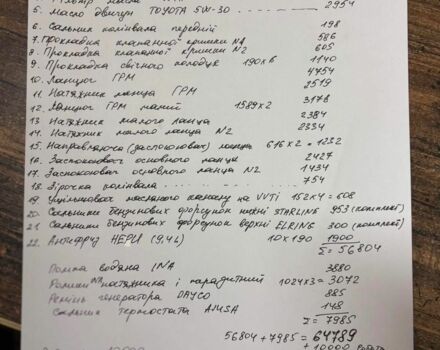 5. Масло двигун TOYOTA 5W-30 - - - - 2954
6. Сальник колінвала передній 198
7. Прокладка клапанної кришки N1 586
8. Прокладка клапанної кришки N2 605
9. Прокладка свічного колодця 190x6 1140
10. Ланцюг ГРМ 4754
11. Натяжник ланцюга ГРМ 2519
12. Ланцюг ГРМ малий 1589x2 3178
13. Натяжник малого ланцюга 2384
14. Натяжник малого ланцюга N2 2334
15. Направляюча (заспокоювач) ланцюга 616x2 = 1232
16. Заспокоювач основного ланцюга 2427
17. Заспокоювач основного ланцюга N2 1434
18. Зірочка колінвала - - - - 754
19. масляного каналу на VVTi 152x4 = 608
20. Сальники бензинових форсунок нижні STARLINE 953 (комплект)
21. Сальники бензинових форсунок верхні ELRING 300 (комплект)
22. Антифриз HEPU (9,4L) 10x190 1900
Σ = 56804
Помпа водяна INA 3880
Ролики натяжника і паразитний 1024x3 = 3072
Ремінь генератора DAYCO 885
Сальник термостата AJUSA 148
Σ = 7985
56804 + 7985 = 64789
+ 10000 Робота